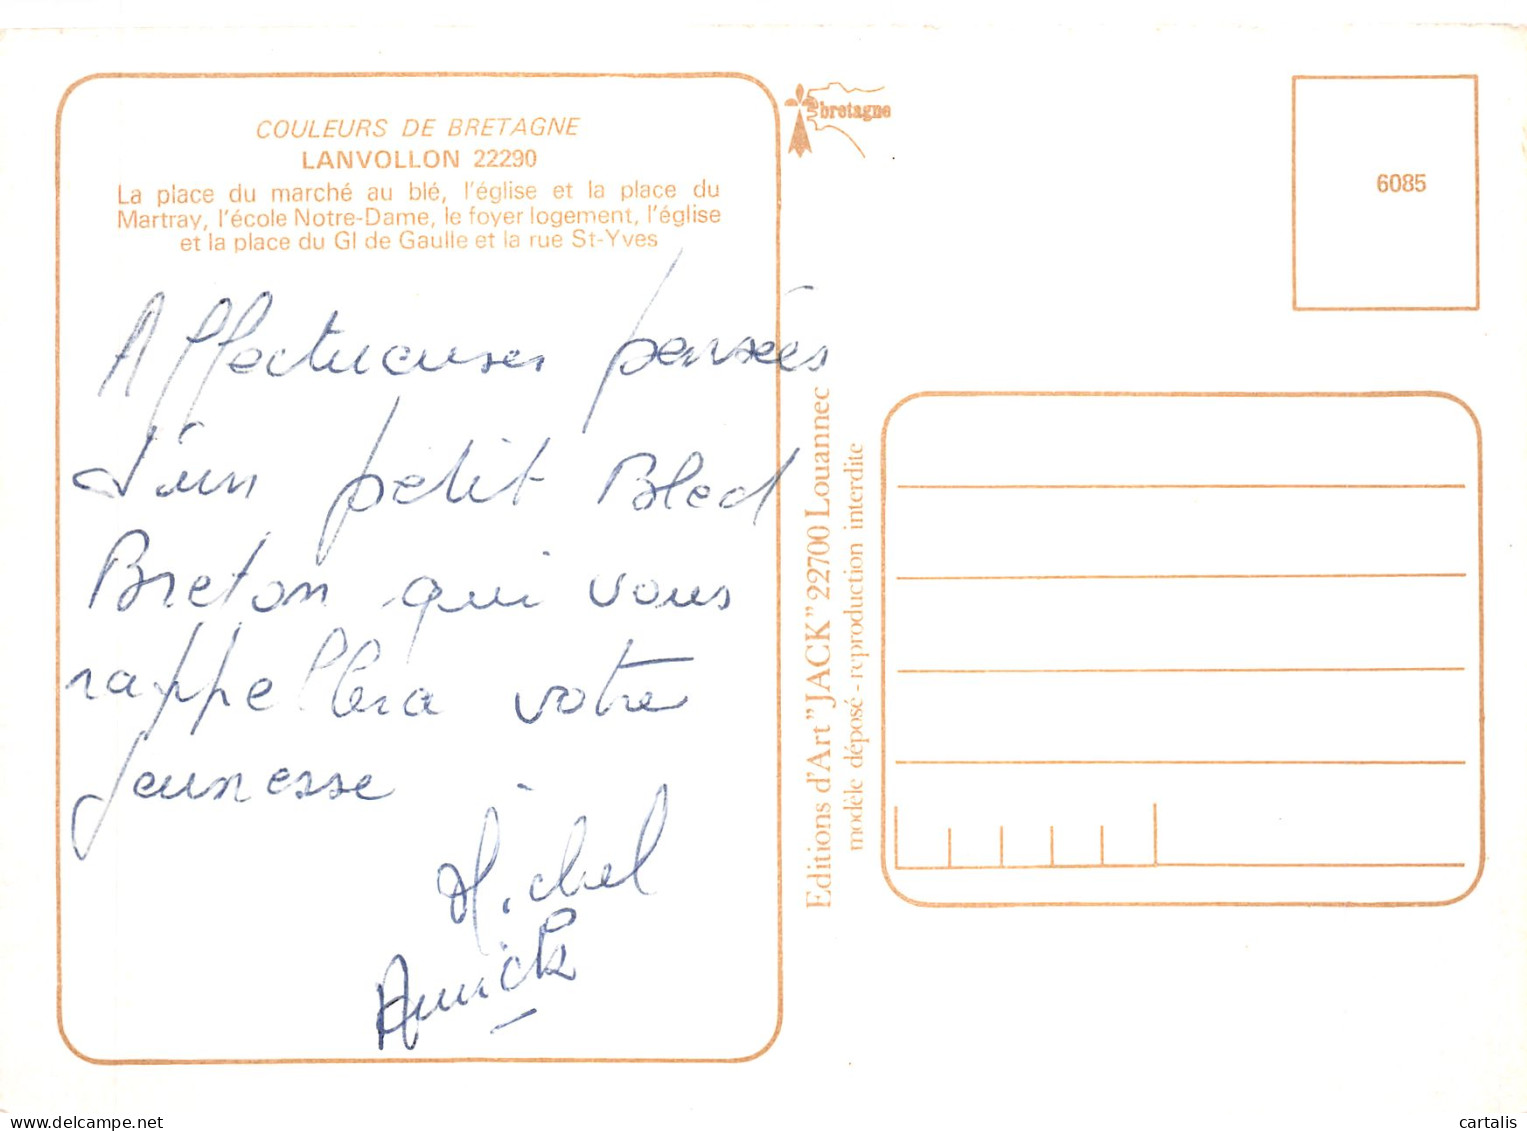 COULEURS DE BRETAGNE
LANVOLLON 22290
La place du marché au blé, l'église et la place du
Martray, l'école Notre-Dame, le foyer logement, l'église
et la place du Gl de Gaulle et la rue St-Yves
Affectueuses pensées
d'un petit Bled
Breton qui vous
rappellera votre
jeunesse
Michel
Annick
bretagne
6085
Editions d'Art "JACK" 22700 Louannec
modèle déposé - reproduction interdite
delcampe.net
cartalis